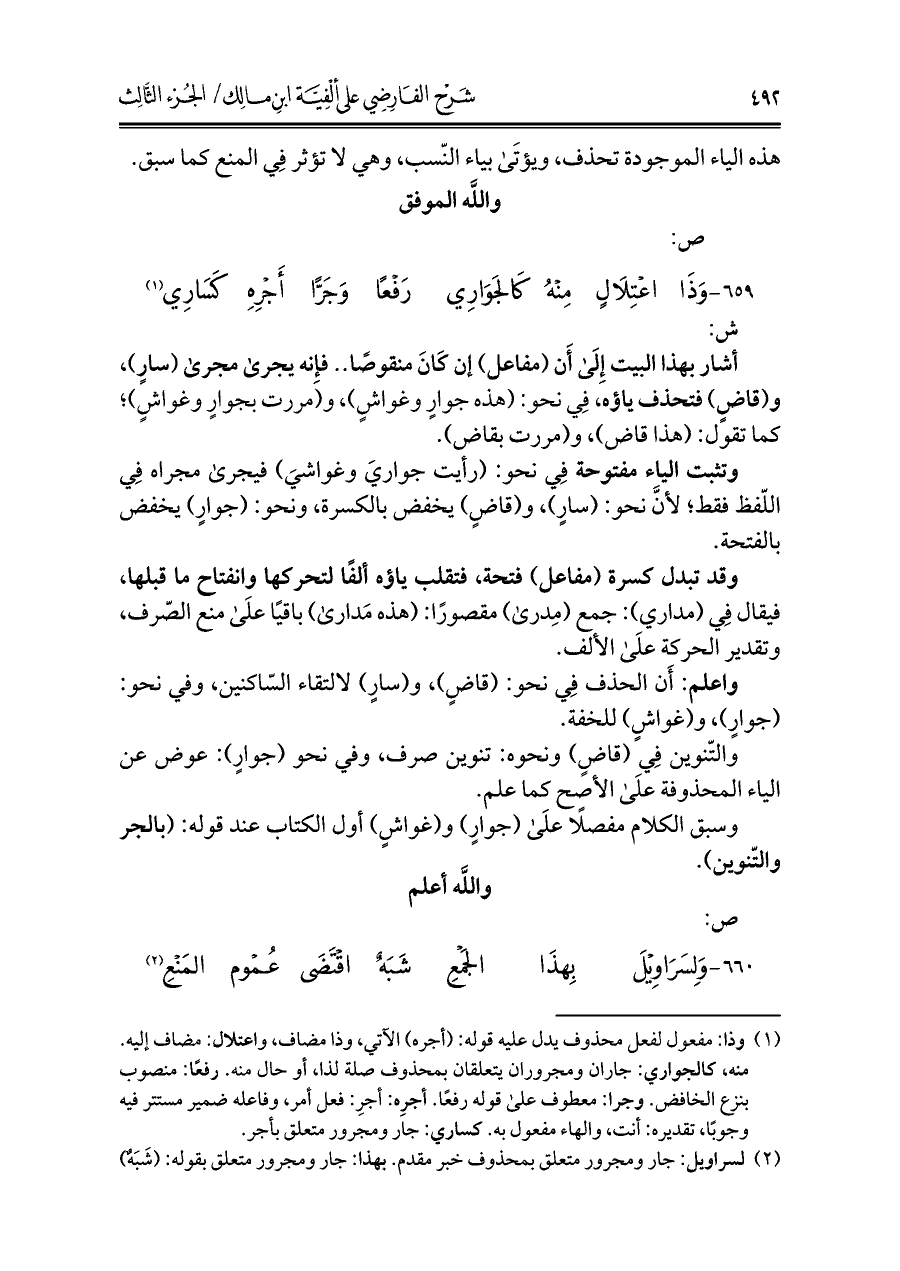 ٤٩٢ شَرْح الفَارِضِي عَلى أَلْفِيَّة ابنِ مَالِك/ الجُزء الثَّالِث
هذه الياء الموجودة تحذف، ويؤتَىٰ بياء النّسب، وهي لا تؤثر فِي المنع كما سبق.
واللَّه الموفق
ص:
٦٥٩-وَذَا اعْتِلَالٍ مِنْهُ كَالجَوَارِي رَفْعًا وَجَرًّا أَجْرِهِ كَسَارِي(١)
ش:
أشار بهذا البيت إِلَىٰ أَن (مفاعل) إن كَانَ منقوصًا.. فإِنه يجرىٰ مجرىٰ (سارٍ)،
و(قاضٍ) فتحذف ياؤه، فِي نحو: (هذه جوارٍ وغواشٍ)، و(مررت بجوارٍ وغواشٍ)؛
كما تقول: (هذا قاض)، و(مررت بقاض).
وتثبت الياء مفتوحة فِي نحو: (رأيت جواريَ وغواشيَ) فيجرىٰ مجراه فِي
اللّفظ فقط؛ لأنَّ نحو: (سارٍ)، و(قاضٍ) يخفض بالكسرة، ونحو: (جوارٍ) يخفض
بالفتحة.
وقد تبدل كسرة (مفاعل) فتحة، فتقلب ياؤه ألفًا لتحركها وانفتاح ما قبلها،
فيقال فِي (مداري): جمع (مِدرىٰ) مقصورًا: (هذه مَدارىٰ) باقيًا علَىٰ منع الصّرف،
وتقدير الحركة علَىٰ الألف.
واعلم: أَن الحذف فِي نحو: (قاضٍ)، و(سارٍ) لالتقاء السّاكنين، وفي نحو:
(جوارٍ)، و(غواشٍ) للخفة.
والتّنوين فِي (قاضٍ) ونحوه: تنوين صرف، وفي نحو (جوارٍ): عوض عن
الياء المحذوفة علَىٰ الأصح كما علم.
وسبق الكلام مفصلًا علَىٰ (جوارٍ) و(غواشٍ) أول الكتاب عند قوله: (بالجر
والتّنوين).
واللَّه أعلم
ص:
٦٦٠-وَلِسَرَاوِيْلَ بِهذَا الجَمْعِ شَبَهٌ اقْتَضَى عُمُوم المَنْعِ(٢)
(١) وذا: مفعول لفعل محذوف يدل عليه قوله: (أجره) الآتي، وذا مضاف، واعتلال: مضاف إليه.
منه، كالجواري: جاران ومجروران يتعلقان بمحذوف صلة لذا، أو حال منه. رفعًا: منصوب
بنزع الخافض. وجرا: معطوف علىٰ قوله رفعًا. أجرِه: أجرِ: فعل أمر، وفاعله ضمير مستتر فيه
وجوبًا، تقديره: أنت، والهاء مفعول به. كساري: جار ومجرور متعلق بأجر.
(٢) لسراويل: جار ومجرور متعلق بمحذوف خبر مقدم. بهذا: جار ومجرور متعلق بقوله: (شَبَهٌ)